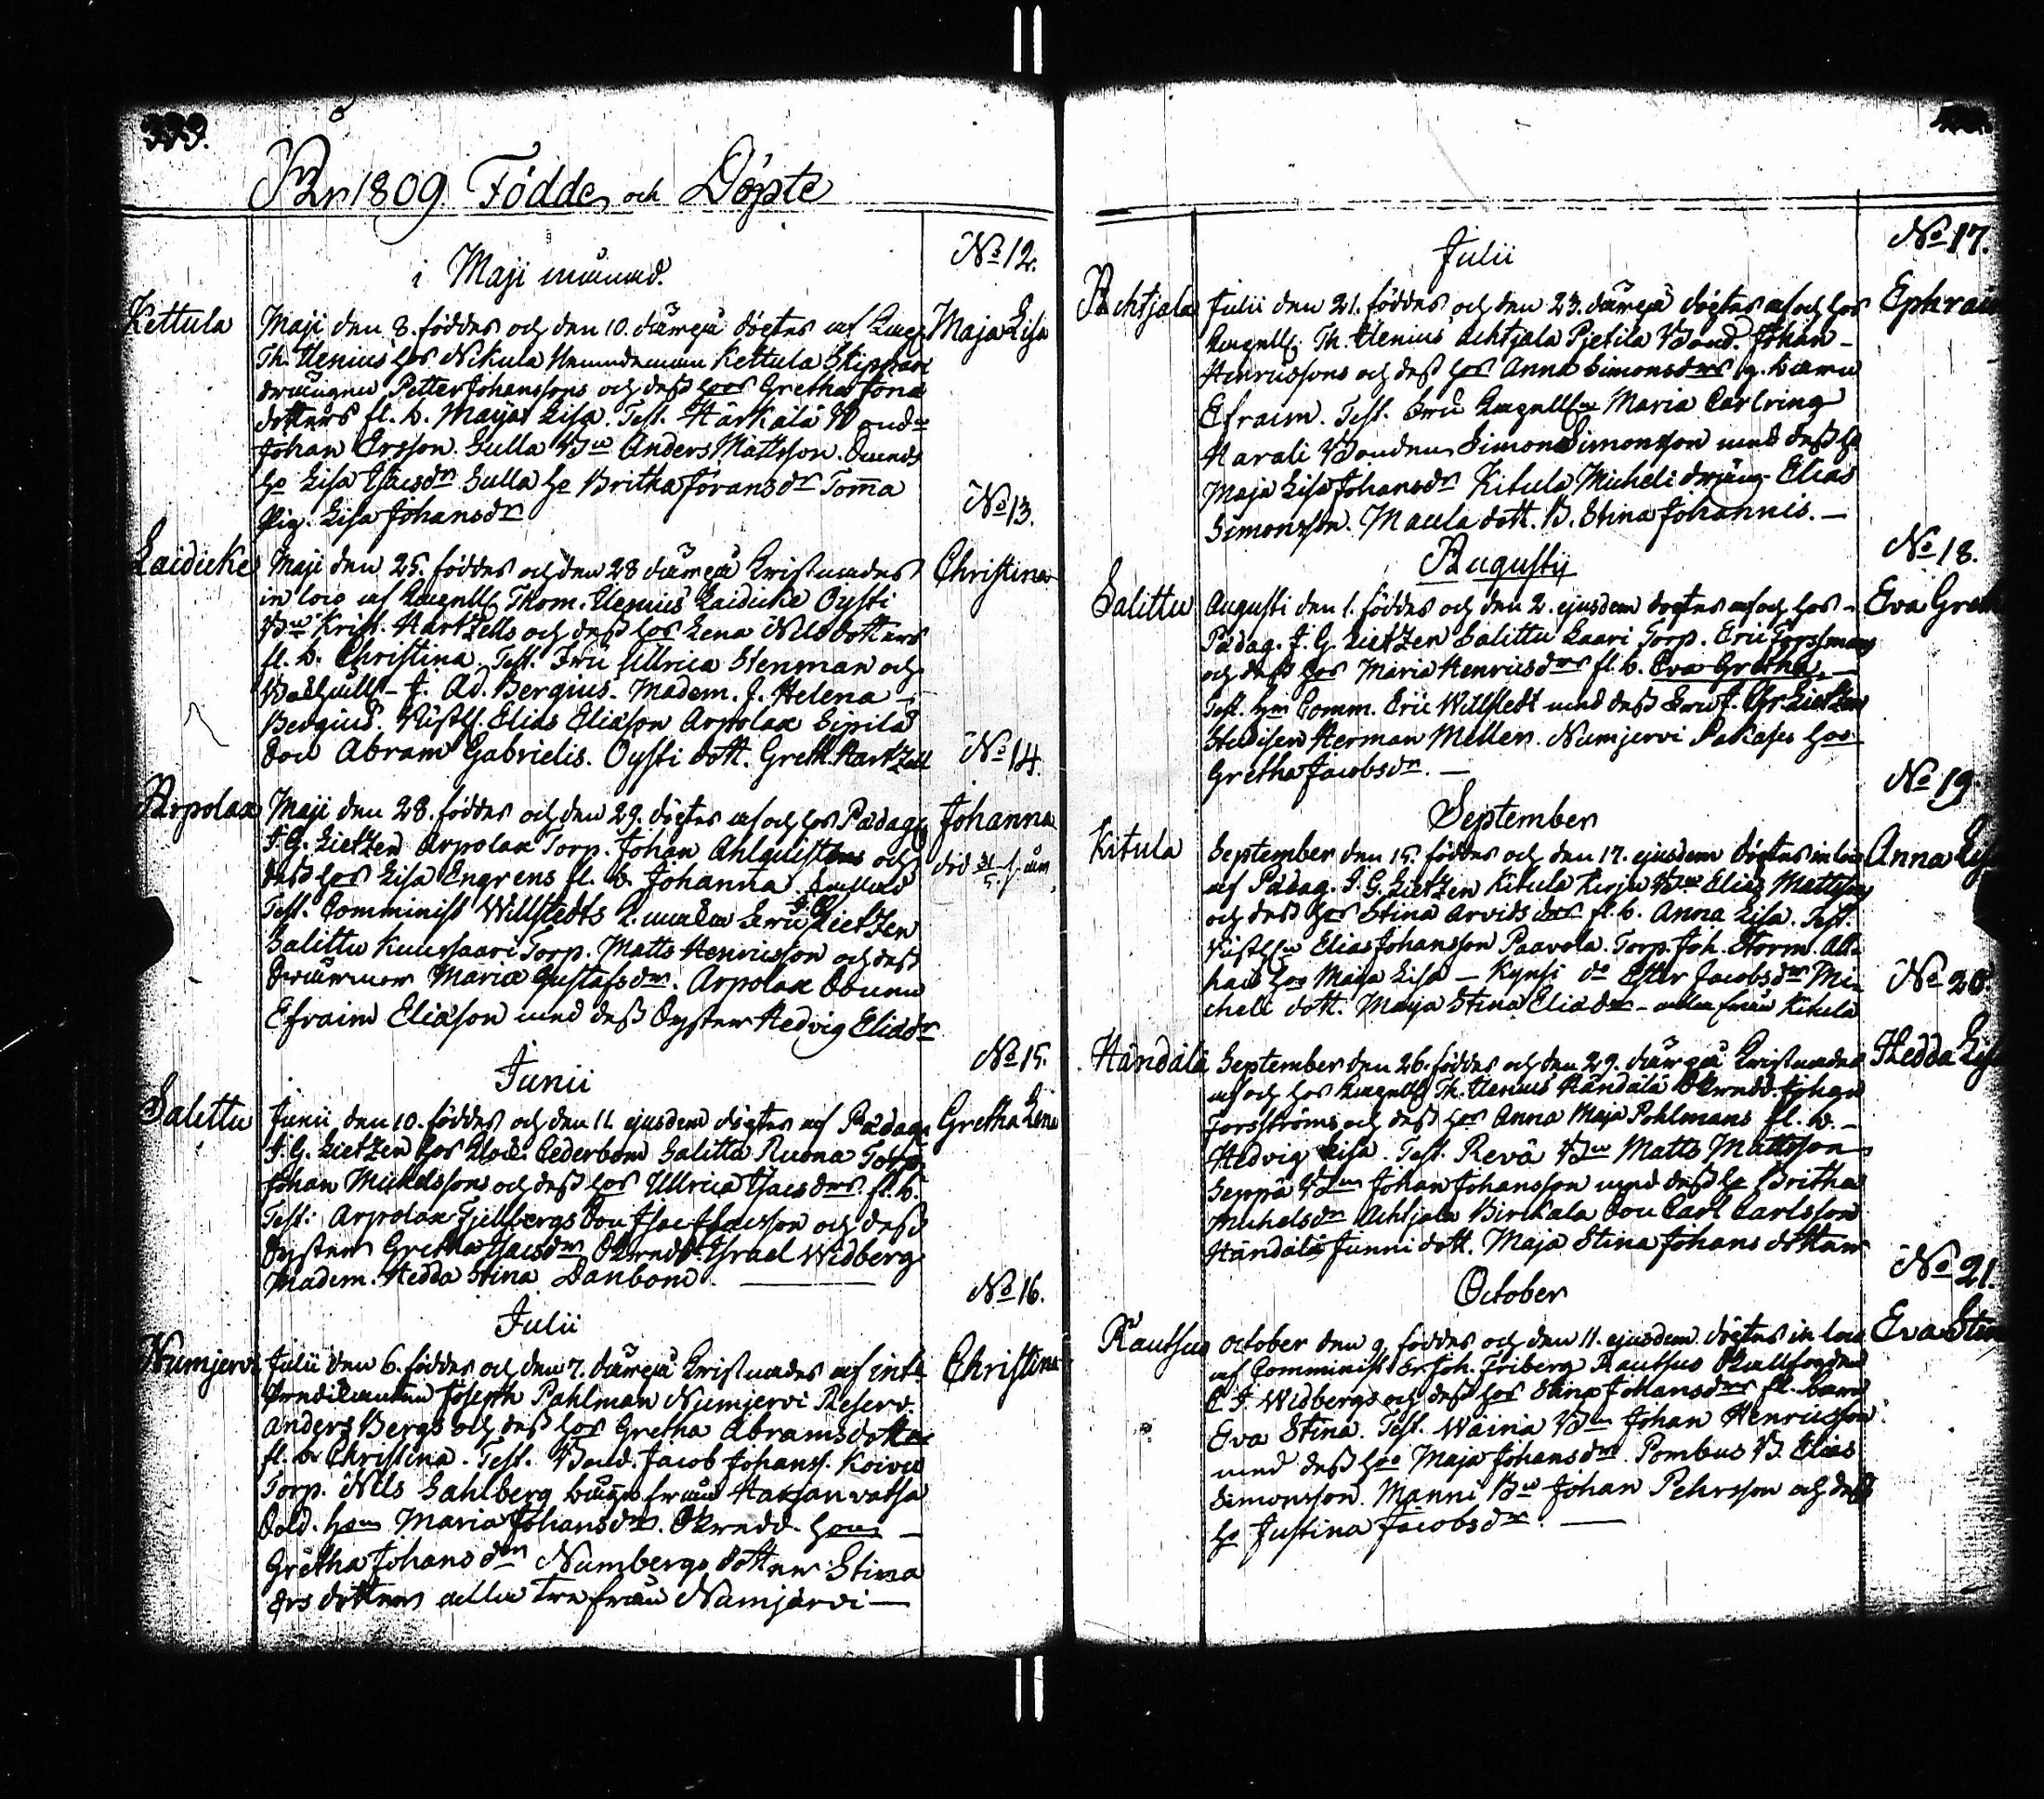 333.
År 1809. Födde och Döpte
i Maji månad.
No 12.
Kettula
Maji den 8. föddes och den 10. därpå döptes af
Maja Lisa
Th. Elenius hos Nikula Nemndeman Kettula Skippari
drängen Petter Johanssons och dess hos Gretha Jörans
dotters fl. b. Maija Lisa. Test. Härkälä Bond
Johan Ersson. Sulla Bn Anders Mattsson.
ho Lisa Isacsdr Sulla ho Britha Jöransdr Tomma
Pig. Lisa Johansdr
No 13.
Laidicke
Maji den 25. föddes och den 28 därpå Kristnades
Christina
in loco af Thom. Elenius Laidicke Oysti
Bn Krist. Hartzells och dess hos Lena Nilsdotters
fl. b. Christina. Test. Fru Ullrica Stenman och
J. Ad. Bergius. Madem. J. Helena
Bergius. Elias Eliason Arpolax Sipilä
Son Abram Gabrielis. Oysti dott. Greth. Hartzell
No 14.
Arpolax
Maji den 28. föddes och den 29. döptes af och hos Pädag.
Johanna
J. G. Lietzen Arpolax Torp. Johan Ahlquistens och
död
dess hos Lisa Engrens fl. b. Johanna.
Test. Comminist Willstedts Fru J. G. Lietzen
Salittu Kuussaari Torp. Matts Henricsson och dess
Svärmor Maria Gustafsdr. Arpolax Sonen
Efraim Eliason med dess Syster Hedvig Eliædr
Junii
No 15.
Salittu
Junii den 10. föddes och den 11. ejusdem döptes af Pædag.
Gretha Lena
J. G. Lietzen hos Klock. Cederbom Salitta Ruona Torp.
Johan Michelssons och dess hos Ullrica Isacsdrs fl. b.
Test: Arpolax Fjellbergs Son Isac Isacsson och dess
Syster Gretha Isacsdr Israel Widberg
Madem. Hedda Stina Danbom
No 16.
Julii
Numjervi
Julii den 6. föddes och den 7. därpå Kristnades af
Christina
Joseph Pahlman Numjervi Reserv.
Anders Bergs och dess hos Gretha Abramsdotters
fl. b. Christina. Test. Bond. Jacob Johanss. Koivu
Torp. Nils Sahlberg bägge från
Sold. hos Maria Johansdr.
Gretha Johansdr Numbergs dotter Stina
dotter alla tre från Numjärvi
Julii
No 17.
Achtjala
Julii den 21. föddes och den 23. därpå döptes af och hos
Ephraim
Th. Elenius Achtjala Pjetila Bond. Johan
Henricssons och dess hos Anna Simonsdrs g. barn
Efraim. Test. Fru Maria Carlring
Harali Bonden Simon Simonsson med dess ho
Maja Lisa Johansdr Kitula Micheli dräng Elias
Simonsson. Maula dott. B. Stina Johannis.
Augusti
No 18.
Salittu
Augusti den 1. föddes och den 2. ejusdem döptes af och hos
Eva Greth
Pädag. J. G. Lietzen Salittu Saari Torp. Eric Forssmans
och dess hos Maria Henricsdrs fl. b. Eva Gretha.
Test. Hr Comm. Eric Willstedt med dess Fru J. Chr. Lietzen
Herman Mellen. Numjervi Pakases hos
Gretha Jacobsdr.
No 19.
September
Kitula
September den 15. föddes och den 17. ejusdem döptes in loco
Anna Lisa
af Pädag. J. G. Lietzen Kitula Kirja Bn Elias Mattsson
och dess hos Stina Arvidsdrs fl. b. Anna Lisa. Test.
Elias Johansson Paavola. Torp. Joh. Storm
hos Maja Lisa. Kynsi do Ester Jacobsdr Mi-
No 20.
cheli dott. Maja Stina Eliædr alla från Kitula
Händälä
September den 26. föddes och den 29. därpå Kristnades
Hedda Lisa
af och hos Th. Elenius Händälä Johan
Forsströms och dess hos Anna Maja Pohlmans fl. b.
Hedvig Lisa. Test. Revä Bn Matts Mattsson
Seppä Bn Johan Johansson med dess ho Britha
Michelsdr Achtjala Birkala Son Carl Carlsson
Händälä Junni dott. Maja Stina Johans dotter
No 21.
October
Rautsuo
October den 9. föddes och den 11. ejusdem döptes in loco
Eva Stina
af Comminist. Er Joh. Friberg Rautsuo
C. J. Widbergs och dess hos Stina Johansdrs fl. barn
Eva Stina. Test. Wäinä Bn Johan Henricsson
med dess hos Maja Johansdr. Pombus B. Elias
Simonsson. Manni Bn Johan Pehrsson och dess
ho Justina Jacobsdr.